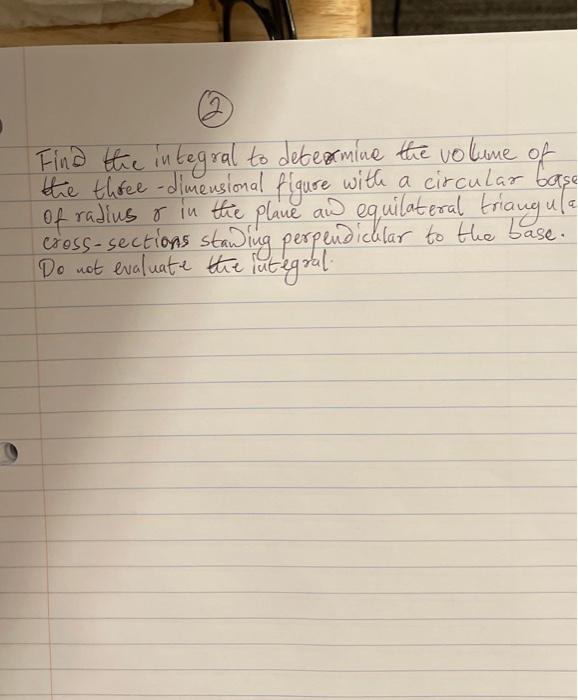 2
Find the integral to determine the volume of
the three-dimensional figure with a circular base
of radius r in the plane and equilateral triangula
cross-sections standing perpendicular to the base.
Do not evaluate the integral.